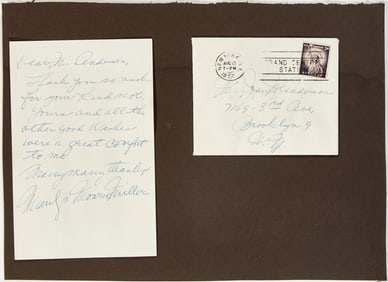 Dear Mr Andersen,
Thank you so much
for your kind note,
Yours and all the
other good wishes
were a great comfort
to me
Many many thanks
Marilyn Monroe Miller
NEW YORK, N.Y.
AUG
PM
1957
GRAND CENTRAL
STATION
Anderson
3rd Ave,
Brooklyn 9
N.Y.